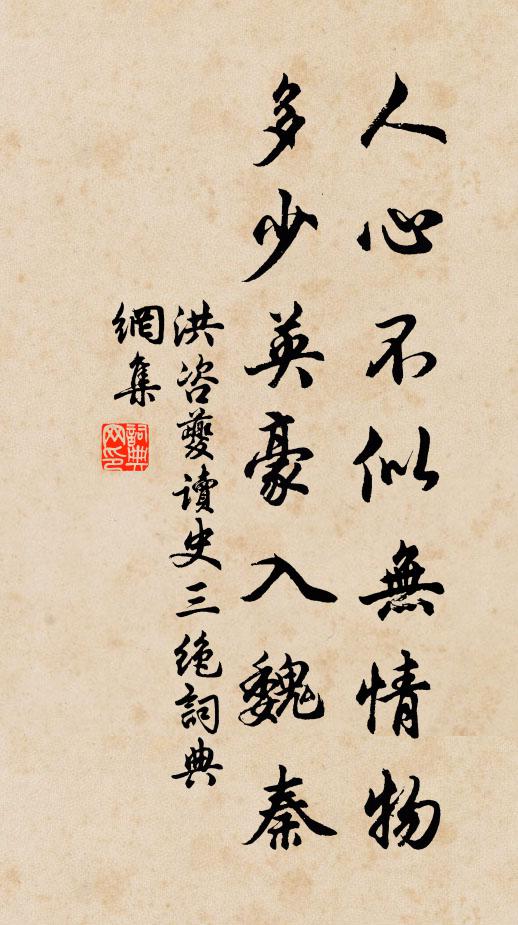 人心不似無情物
多少英豪入魏秦
洪咨夔讀史三绝詞典
網集
詞典
网印